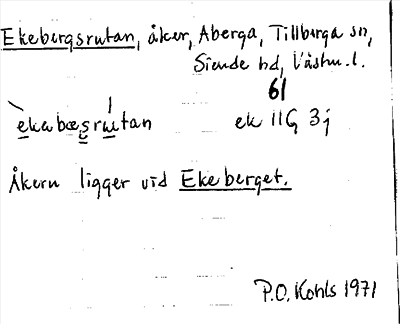 Ekebergsrutan, åker, Aberga, Tillberga sn,
Siende hd, Västm. l.
61
èkabæsru̲tan ek 11G 3j
Åkern ligger vid Ekeberget.
P.O. Kohls 1971